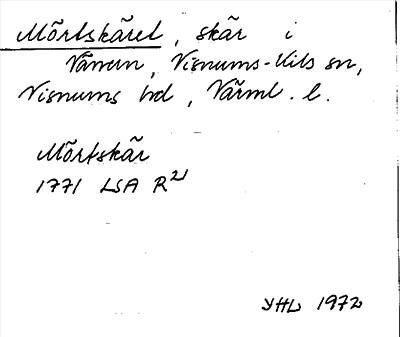 Mörtskäret, skär i
Vänern, Visnums-Kils sn,
Visnums hd, Värml. l.
Mörtskär
1771 LSA R21
YHL 1972